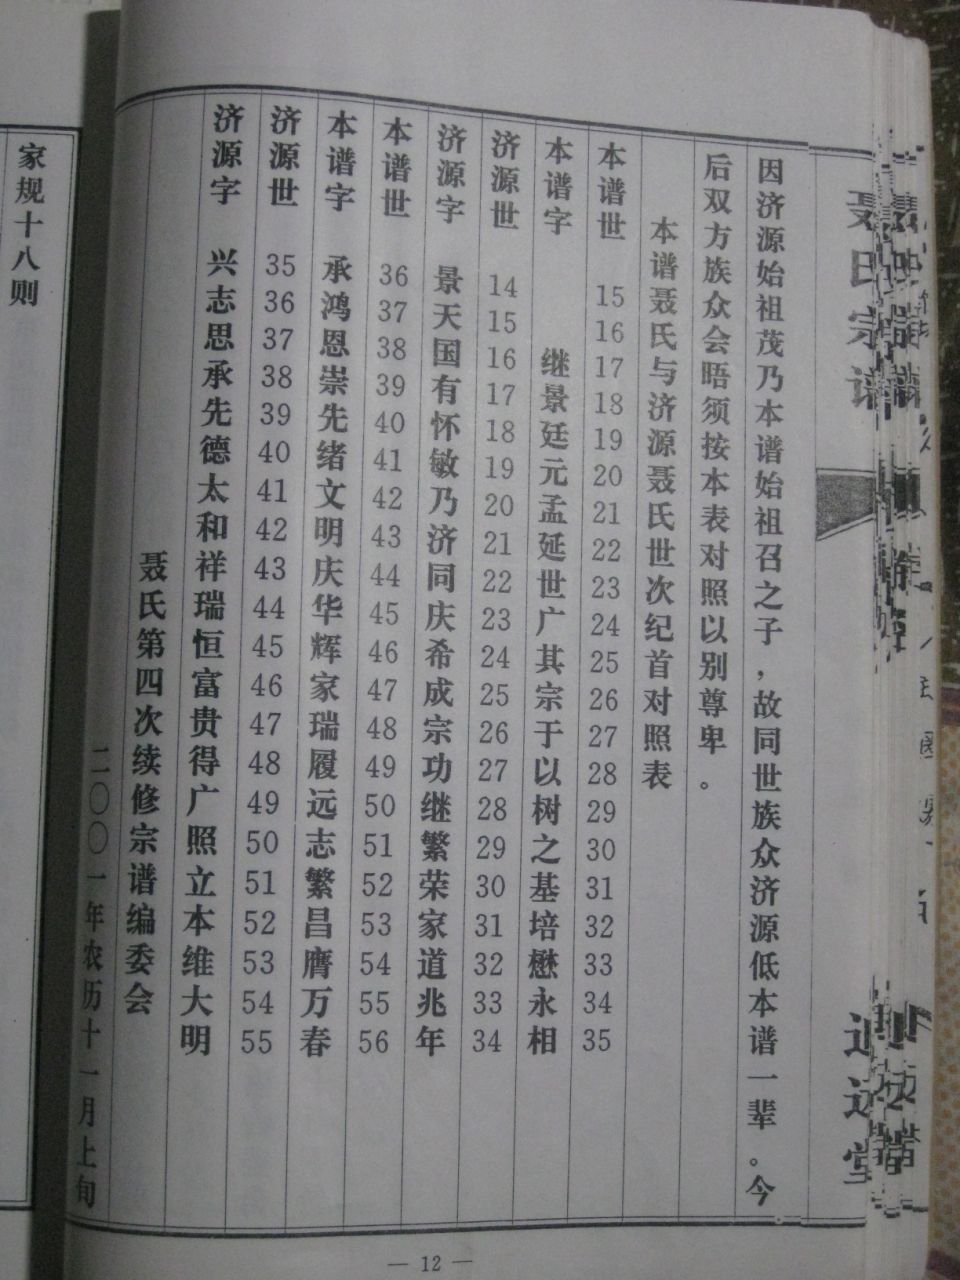 聂氏宗谱
因济源始祖茂乃本谱始祖召之子，故同世族众济源低本谱一辈。今
后双方族众会晤须按本表对照以别尊卑。
本谱聂氏与济源聂氏世次纪首对照表
本谱世 15 16 17 18 19 20 21 22 23 24 25 26 27 28 29 30 31 32 33 34 35
本谱字 继景廷元孟延世广其宗于以树之基培懋永相
济源世 14 15 16 17 18 19 20 21 22 23 24 25 26 27 28 29 30 31 32 33 34
济源字 景天国有怀敏乃济同庆希成宗功继繁荣家道兆年
本谱世 36 37 38 39 40 41 42 43 44 45 46 47 48 49 50 51 52 53 54 55 56
本谱字 承鸿恩崇先绪文明庆华辉家瑞履远志繁昌膺万春
济源世 35 36 37 38 39 40 41 42 43 44 45 46 47 48 49 50 51 52 53 54 55
济源字 兴志思承先德太和祥瑞恒富贵得广照立本维大明
聂氏第四次续修宗谱编委会
二〇〇一年农历十一月上旬
— 12 —
家规十八则